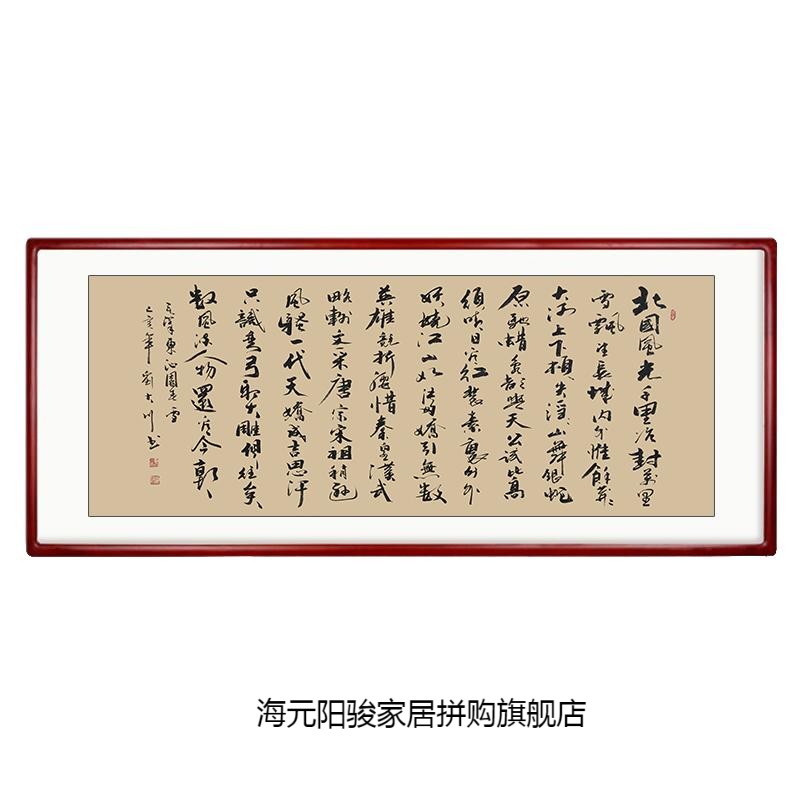 北國風光千里冰封萬里
雪飄望長城內外惟餘莽莽
大河上下頓失滔滔山舞銀蛇
原馳蠟象欲與天公試比高
須晴日看紅裝素裹分外
妖嬈江山如此多嬌引無數
英雄競折腰惜秦皇漢武
略輸文采唐宗宋祖稍遜
風騷一代天嬌成吉思汗
只識彎弓射大雕俱往矣
數風流人物還看今朝
毛澤東沁園春雪
己亥年劉大川書
海元阳骏家居拼购旗舰店